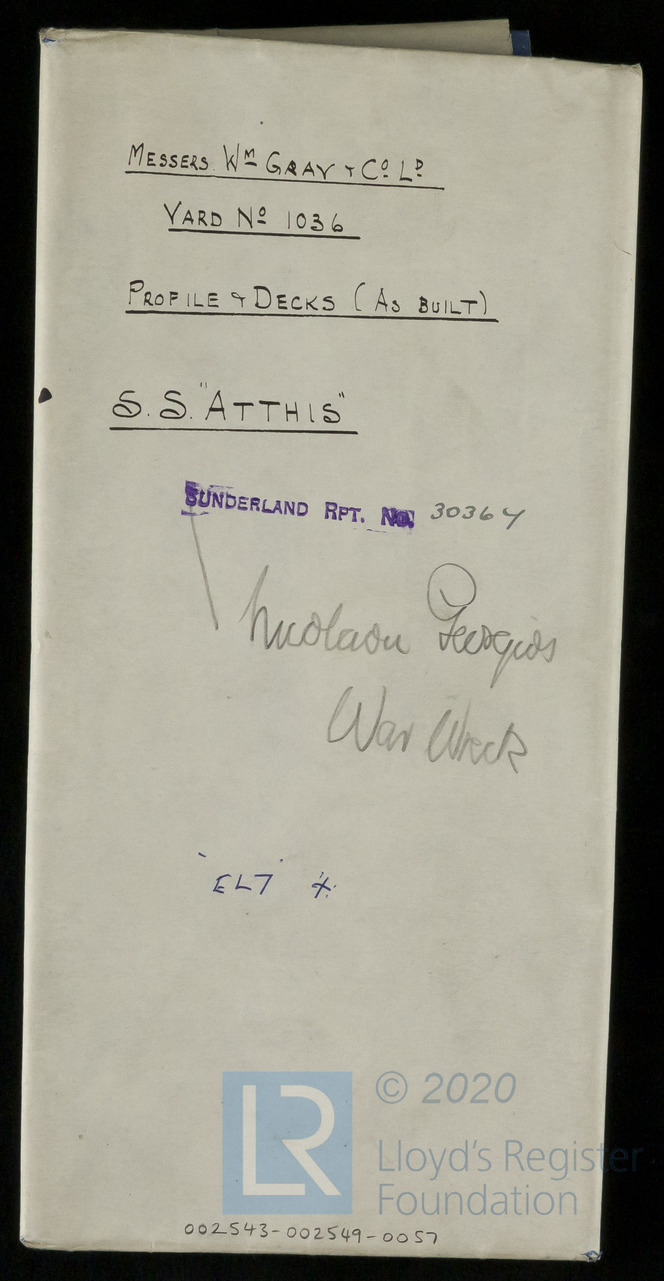 MESSERS. WM GRAY & CO. LD.
YARD NO 1036
PROFILE & DECKS (AS BUILT)
S.S. "ATTHIS"
SUNDERLAND RPT. No. 30364
Nicolaou Georgios
War Wreck
LR
© 2020
Lloyd's Register
Foundation
002543-002549-0057